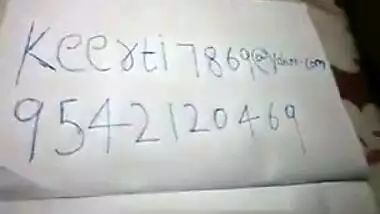 Keerti7869@yahoo.com
9542120469